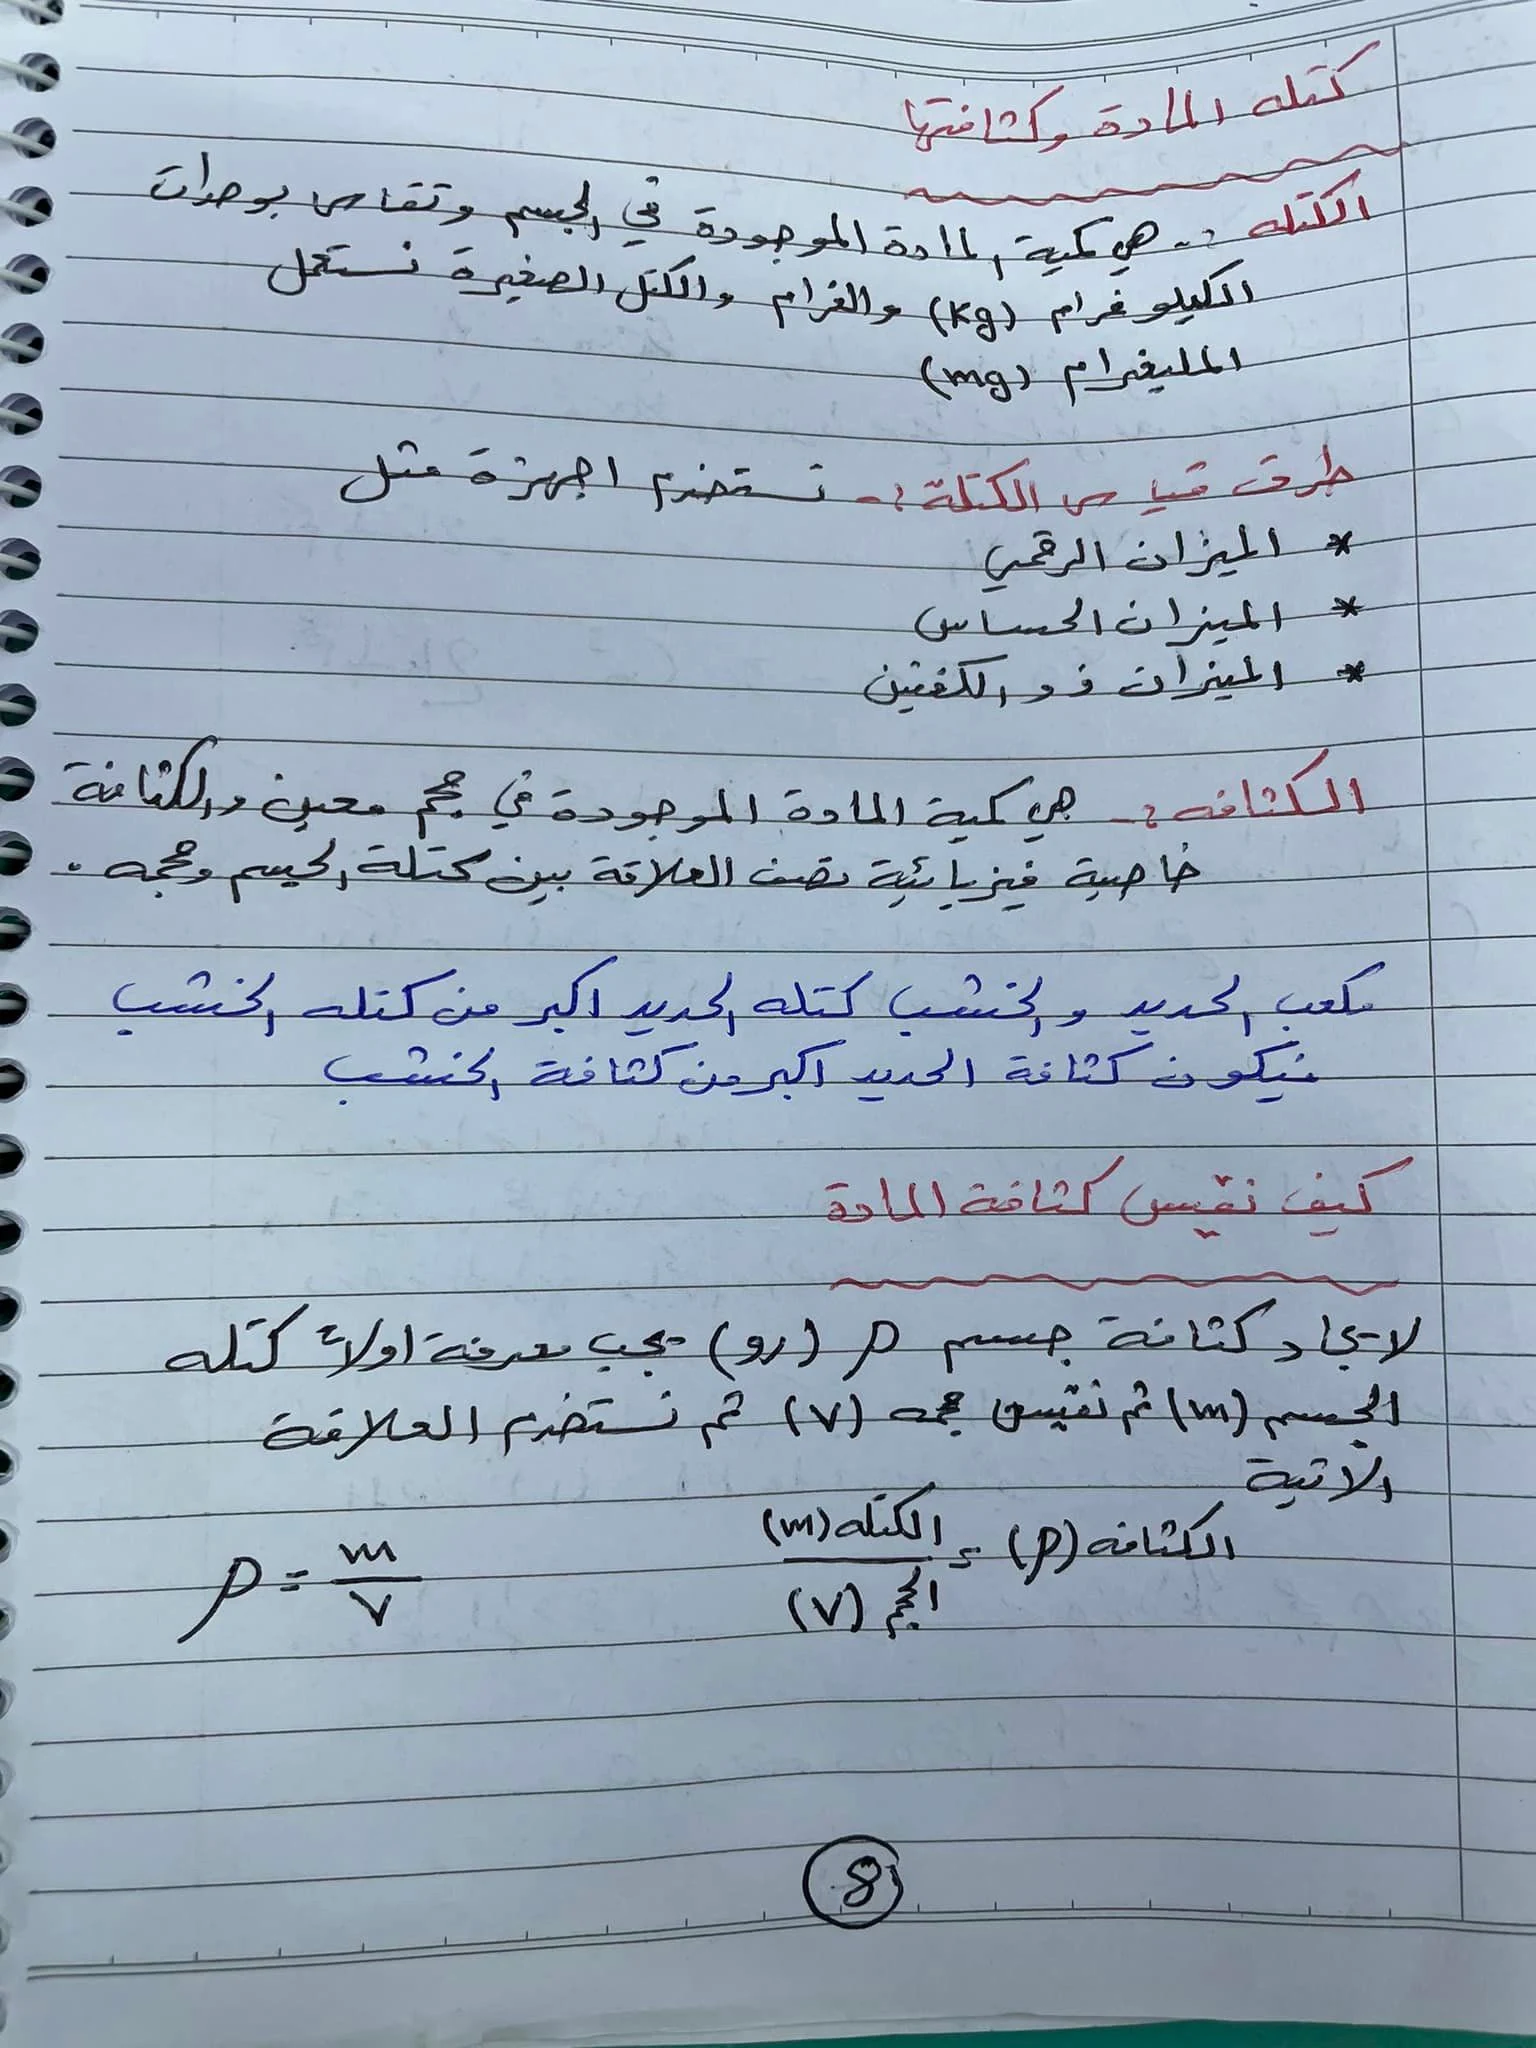 كتله المادة وكثافتها
الكتله :- هي كمية المادة الموجودة في الجسم وتقاس بوحدات
الكيلو غرام (kg) والغرام والكتل الصغيرة نستعمل
المليغرام (mg)
طرق قياس الكتلة :- تستخدم اجهزة مثل
* الميزان الرقمي
* الميزان الحساس
* الميزان ذو الكفتين
الكثافه :- هي كمية المادة الموجودة في حجم معين والكثافة
خاصية فيزيائية تصف العلاقة بين كتلة الجسم وحجمه .
مكعب الحديد والخشب كتله الحديد اكبر من كتله الخشب
فيكون كثافة الحديد اكبر من كثافة الخشب
كيف نقيس كثافة المادة
لايجاد كثافة جسم ρ (رو) يجب معرفة اولاً كتله
الجسم (m) ثم نقيس حجمه (v) ثم نستخدم العلاقة
الآتية
الكثافه (ρ) = الكتله (m) / الحجم (v) ρ = m / v
8